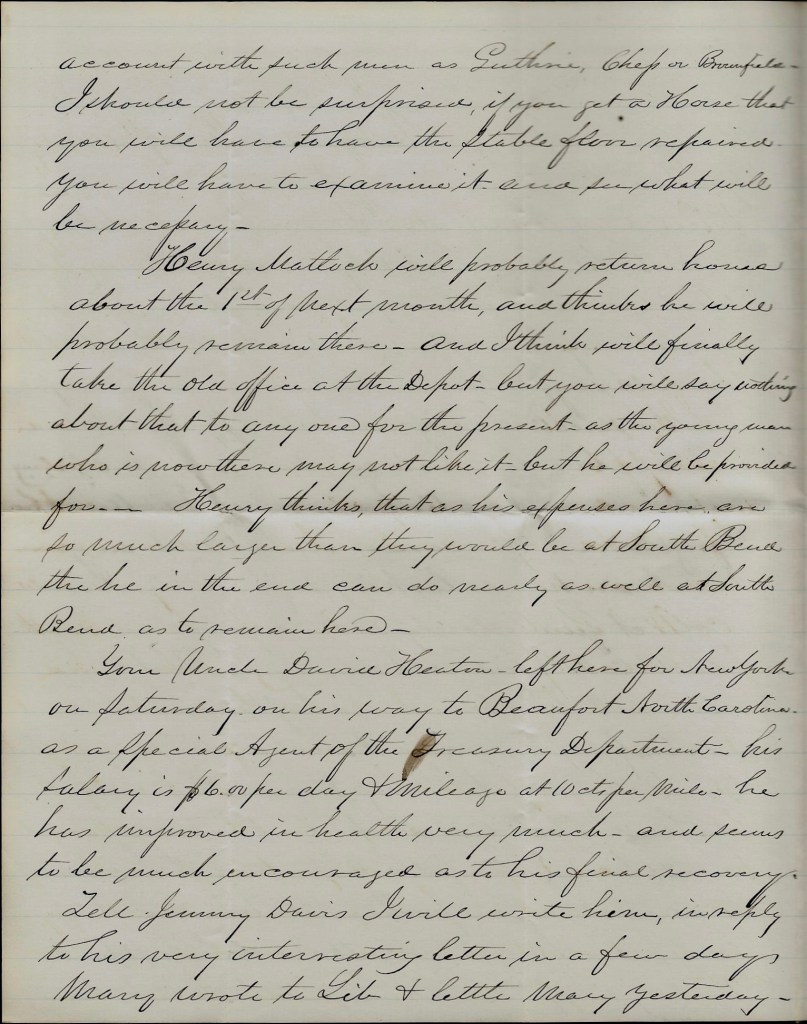 account with such men as Guthrie, Chess or Brownfield -
I should not be surprised, if you get a Horse that
you will have to have the stable floor repaired -
you will have to examine it - and see what will
be necessary -
Henry Matlock will probably return home
about the 1st of next month, and thinks he will
probably remain there - and I think will finally
take the old office at the Depot - but you will say nothing
about that to any one for the present - as the young man
who is now there may not like it - but he will be provided
for - - Henry thinks, that as his expenses here are
so much larger than they would be at South Bend
the he in the end can do nearly as well at South
Bend as to remain here -
Your Uncle David Heaton - left here for New York
on Saturday on his way to Beaufort North Carolina -
as a Special Agent of the Treasury Department - his
salary is $6.00 per day & Mileage at 10 cts per Mile - he
has improved in health very much - and seems
to be much encouraged as to his final recovery.
Tell Jimmy Davis I will write him, in reply
to his very interresting letter in a few days
Mary wrote to Lib & little Mary yesterday -